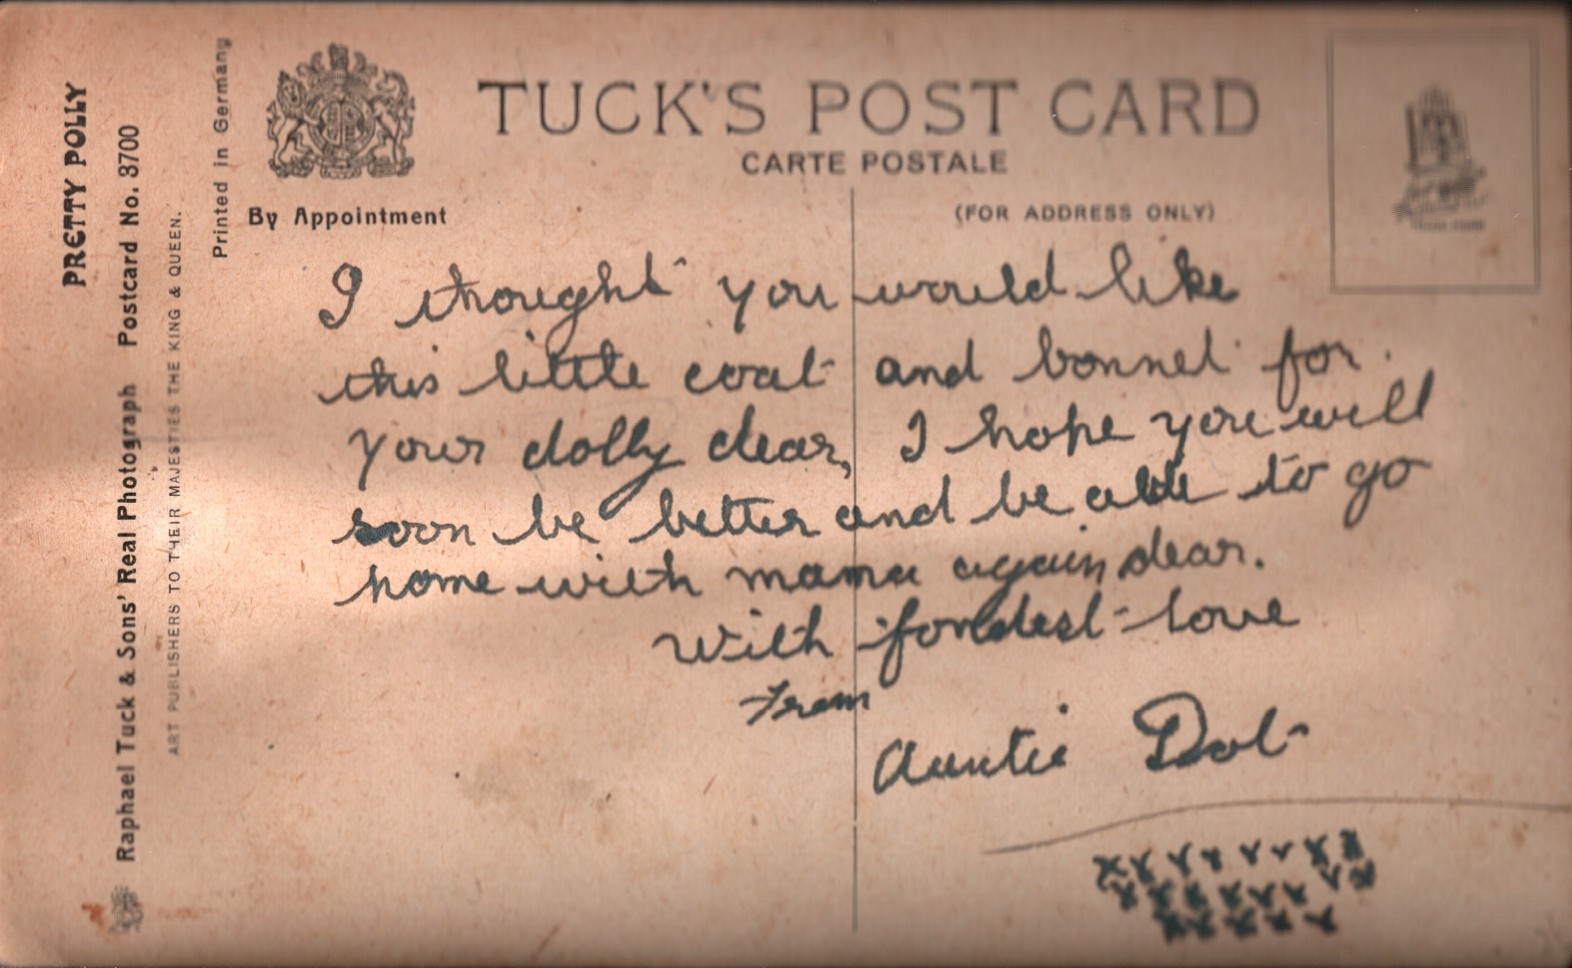 PRETTY POLLY
Raphael Tuck & Sons' Real Photograph Postcard No. 3700
ART PUBLISHERS TO THEIR MAJESTIES THE KING & QUEEN.
Printed in Germany
By Appointment
TUCK'S POST CARD
CARTE POSTALE
(FOR ADDRESS ONLY)
I thought you would like
this little coat and bonnet for
your dolly dear, I hope you will
soon be better and be able to go
home with mama again dear.
With fondest love
From
Auntie Dot
XXXXXXXX
XXXXXXXX
XXXXX